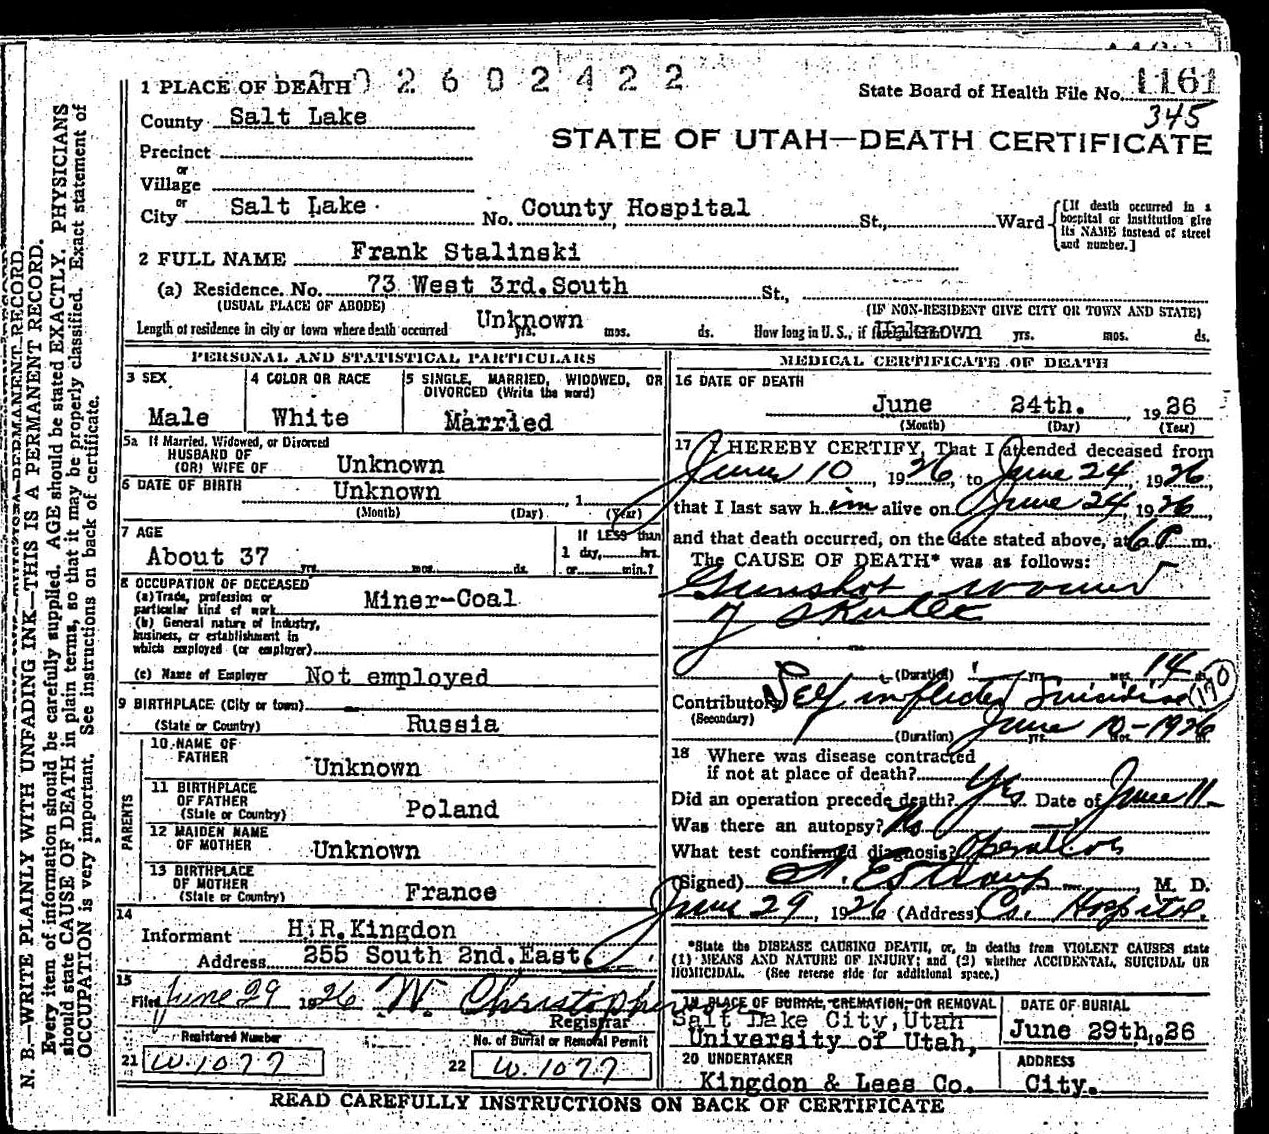 1 PLACE OF DEATH 2 6 0 2 4 2 2
State Board of Health File No. 1161
345
County Salt Lake
STATE OF UTAH—DEATH CERTIFICATE
Precinct
or
Village
or
City Salt Lake No. County Hospital St., Ward
[If death occurred in a hospital or institution give its NAME instead of street and number.]
2 FULL NAME Frank Stalinski
(a) Residence. No. 73 West 3rd. South St.,
(USUAL PLACE OF ABODE) (IF NON-RESIDENT GIVE CITY OR TOWN AND STATE)
Length of residence in city or town where death occurred Unknown yrs. mos. ds. How long in U.S., if Unknown yrs. mos. ds.
PERSONAL AND STATISTICAL PARTICULARS
3 SEX
Male
4 COLOR OR RACE
White
5 SINGLE, MARRIED, WIDOWED, OR
DIVORCED (Write the word)
Married
5a If Married, Widowed, or Divorced
HUSBAND OF
(OR) WIFE OF Unknown
6 DATE OF BIRTH Unknown , 1
(Month) (Day) (Year)
7 AGE
About 37 yrs. mos. ds.
If LESS than
1 day, hrs.
or min.?
8 OCCUPATION OF DECEASED
(a) Trade, profession or
particular kind of work Miner-Coal
(b) General nature of industry,
business, or establishment in
which employed (or employer)
(c) Name of Employer Not employed
9 BIRTHPLACE (City or town)
(State or Country) Russia
PARENTS
10 NAME OF
FATHER Unknown
11 BIRTHPLACE
OF FATHER
(State or Country) Poland
12 MAIDEN NAME
OF MOTHER Unknown
13 BIRTHPLACE
OF MOTHER
(State or Country) France
14
Informant H.R.Kingdon
Address 255 South 2nd.East.
15
Filed June 29 1926 W. Christopherson
Registrar
Registered Number
21 W.1077
No. of Burial or Removal Permit
22 W.1077
MEDICAL CERTIFICATE OF DEATH
16 DATE OF DEATH
June 24th. , 1926
(Month) (Day) (Year)
17 I HEREBY CERTIFY, That I attended deceased from
June 10, 1926, to June 24 1926,
that I last saw him alive on June 24, 1926,
and that death occurred, on the date stated above, at 6 P m.
The CAUSE OF DEATH* was as follows:
Gunshot wound
of skull
(Duration) yrs. mos. 14 ds.
Contributory Self inflicted Suicidal 170
(Secondary)
(Duration) June 10-1926
18 Where was disease contracted
if not at place of death?
Did an operation precede death? Yes Date of June 11-
Was there an autopsy? No
What test confirmed diagnosis? Operation
(Signed) M. D.
June 29, 1926 (Address) Co. Hospital.
*State the DISEASE CAUSING DEATH, or, in deaths from VIOLENT CAUSES state
(1) MEANS AND NATURE OF INJURY; and (2) whether ACCIDENTAL, SUICIDAL OR
HOMICIDAL. (See reverse side for additional space.)
19 PLACE OF BURIAL, CREMATION, OR REMOVAL
Salt Lake City, Utah
University of Utah,
DATE OF BURIAL
June 29th, 1926
20 UNDERTAKER
Kingdon & Lees Co.
ADDRESS
City.
READ CAREFULLY INSTRUCTIONS ON BACK OF CERTIFICATE
N. B.—WRITE PLAINLY WITH UNFADING INK—THIS IS A PERMANENT RECORD.
Every item of information should be carefully supplied. AGE should be stated EXACTLY. PHYSICIANS
should state CAUSE OF DEATH in plain terms, so that it may be properly classified. Exact statement of
OCCUPATION is very important. See instructions on back of certificate.